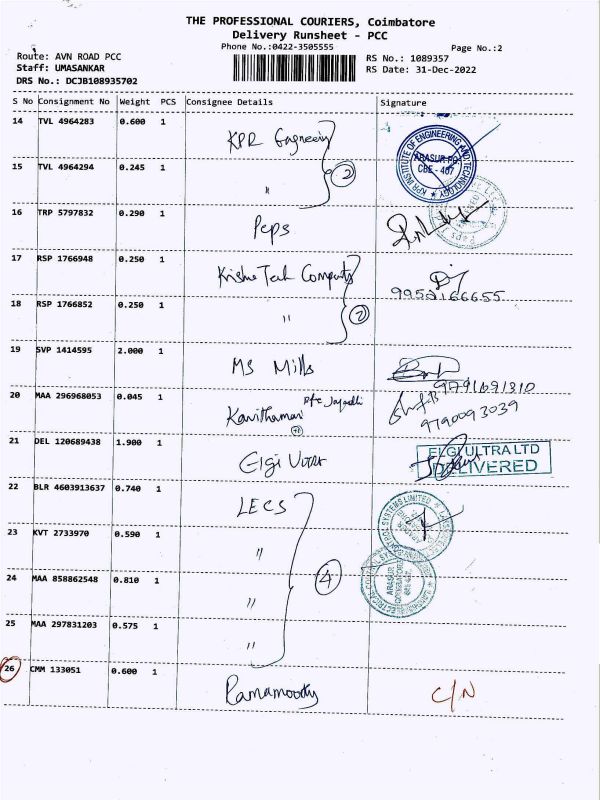 THE PROFESSIONAL COURIERS, Coimbatore
Delivery Runsheet - PCC
Phone No.:0422-3505555
Page No.:2
Route: AVN ROAD PCC
RS No.: 1089357
Staff: UMASANKAR
RS Date: 31-Dec-2022
DRS No.: DCJB108935702
S No Consignment No Weight PCS Consignee Details Signature
14 TVL 4964283 0.600 1 KPR Engineering
KPR INSTITUTE OF ENGINEERING AND TECHNOLOGY
ARASUR PO.
CBE - 407
15 TVL 4964294 0.245 1 " 2
16 TRP 5797832 0.290 1 Peps
17 RSP 1766948 0.250 1 Krishna Tech
9952166655
18 RSP 1766852 0.250 1 " 2
19 SVP 1414595 2.000 1 MS Mills
9791691310
20 MAA 296968053 0.045 1 Kavithamani
9790093039
21 DEL 120689438 1.900 1 Elgi Ultra
ELGI ULTRA LTD
DELIVERED
22 BLR 4603913637 0.740 1 LECS
SYSTEMS LIMITED
23 KVT 2733970 0.590 1 "
24 MAA 858862548 0.810 1 " 4
ARASUR
25 MAA 297831203 0.575 1 "
26 CMM 133051 0.600 1 Ramamoorthy C/N